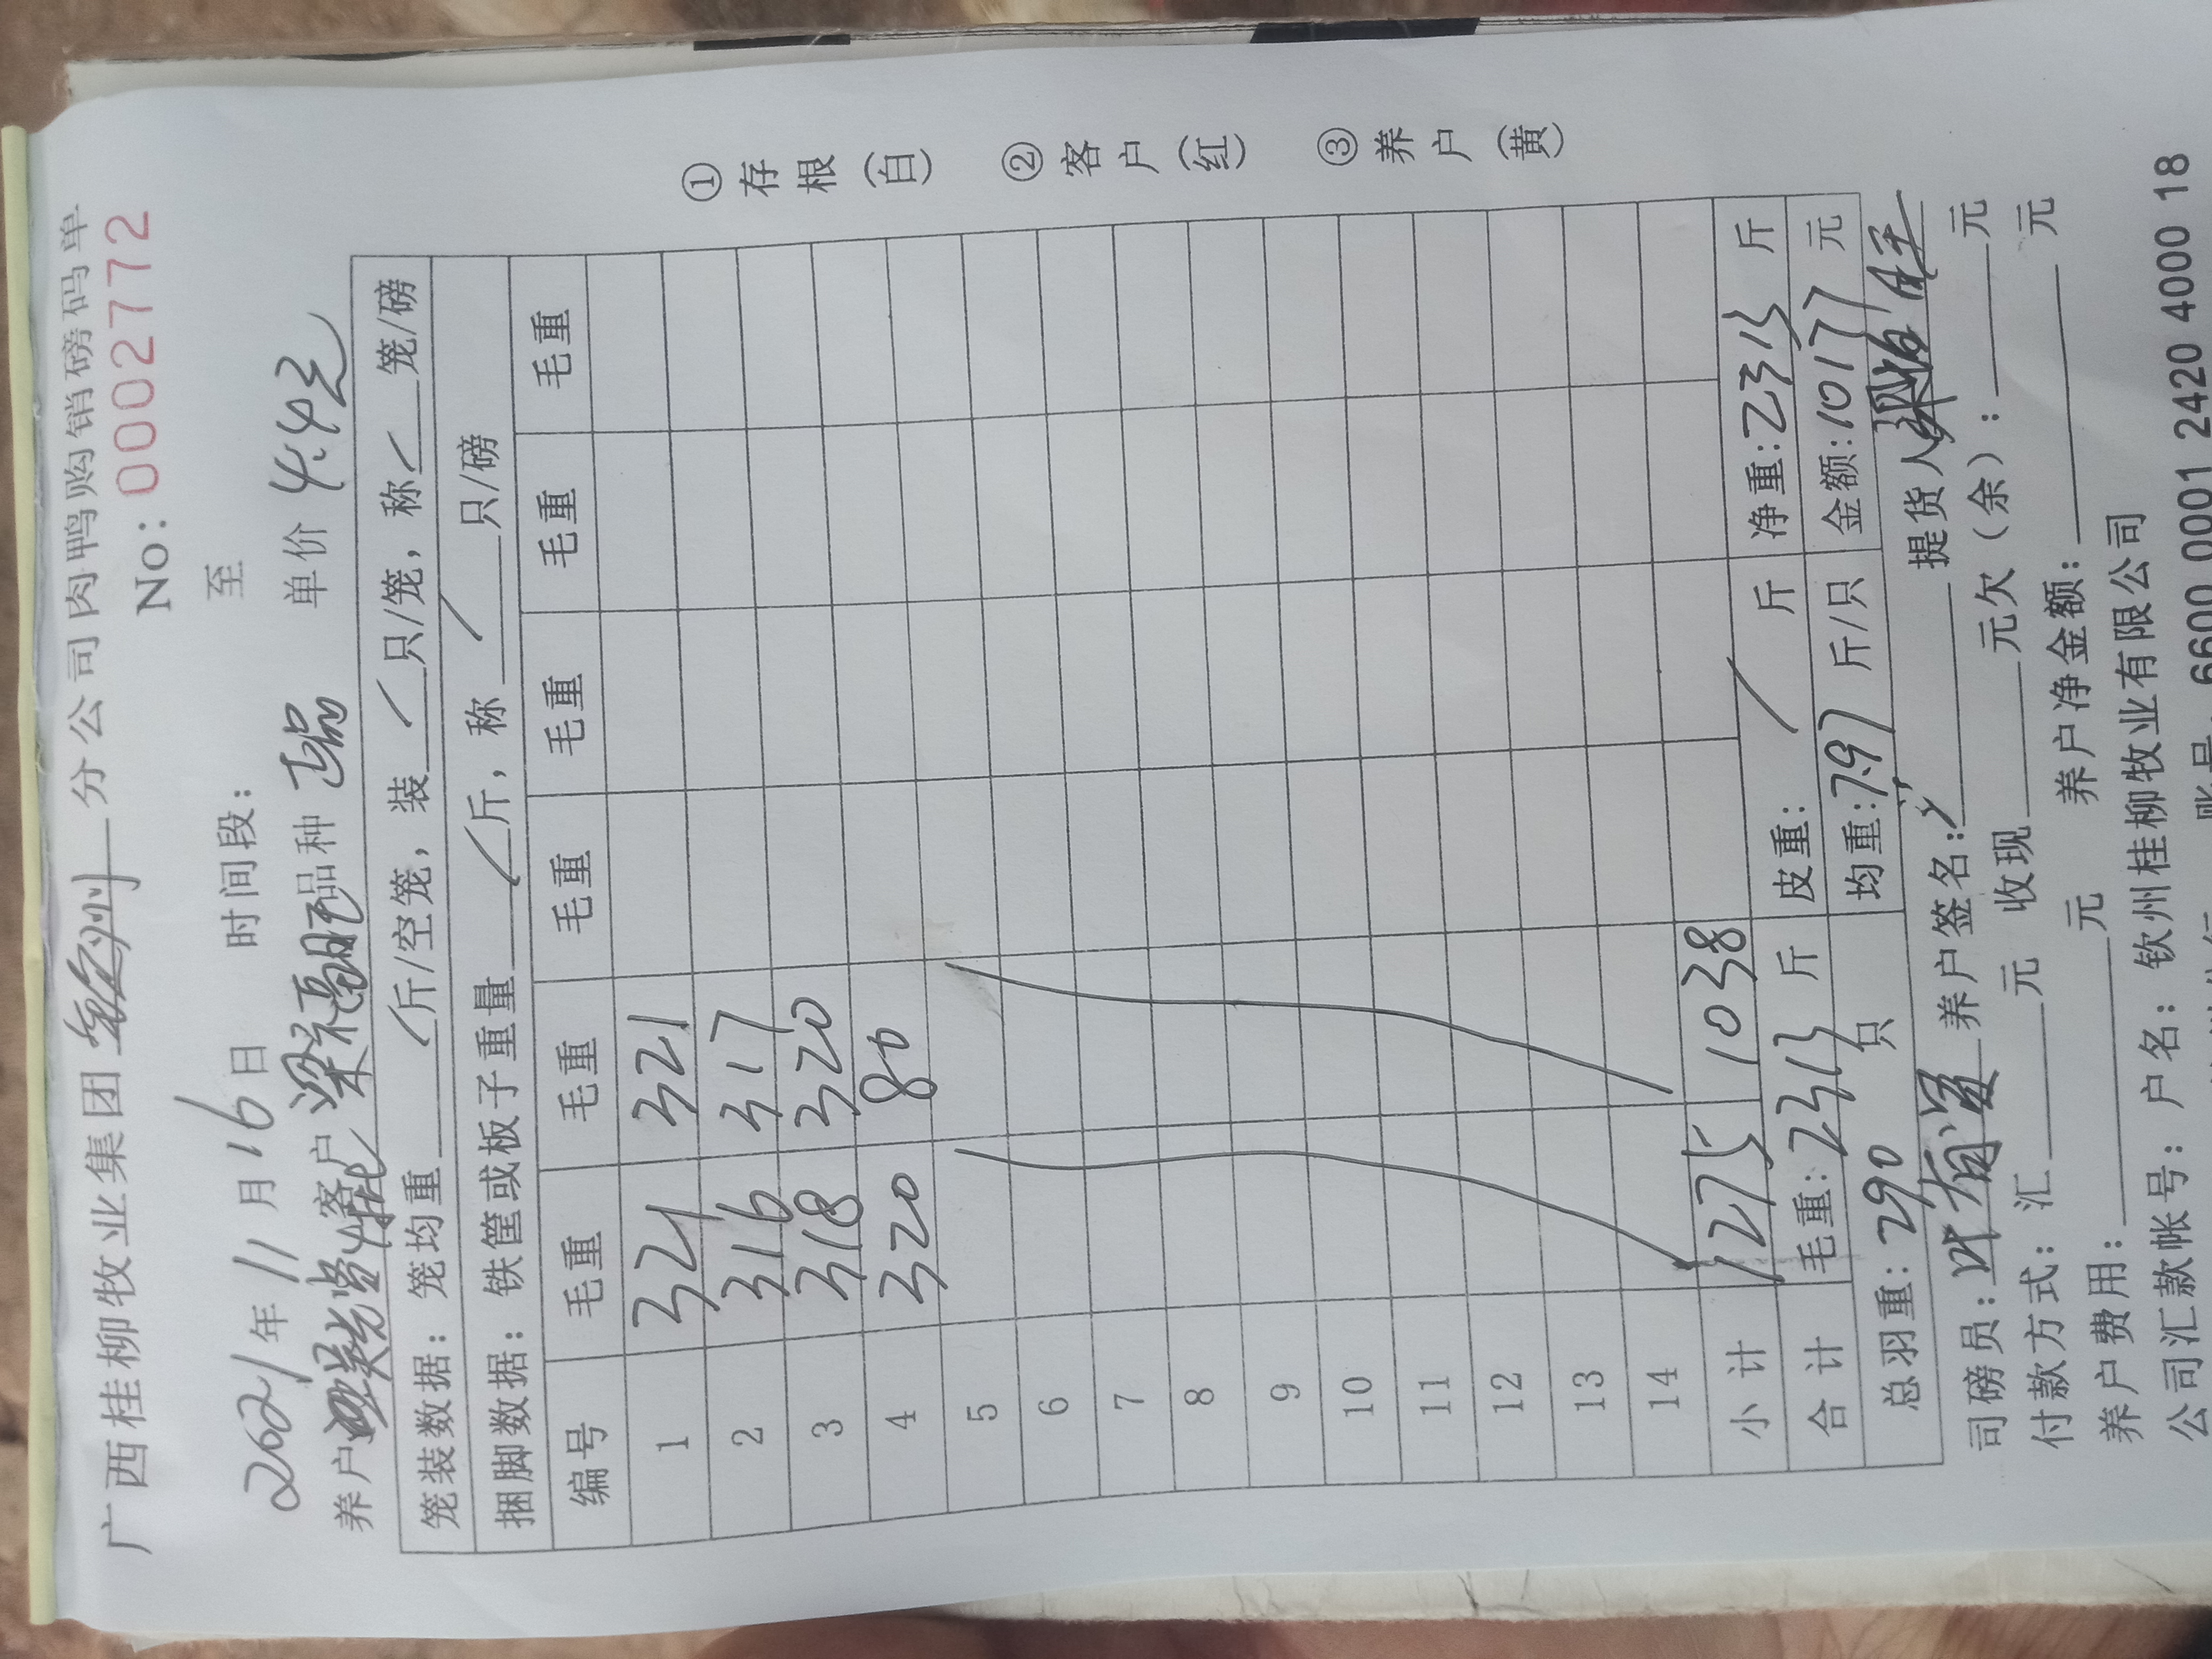 广西桂柳牧业集团钦州分公司肉鸭购销磅码单
No:0002772
2021年11月16日 时间段: 至
养户 客户 梁福 品种 单价 4.4元
笼装数据: 笼均重 / 斤/空笼, 装 / 只/笼, 称 / 笼/磅
捆脚数据: 铁筐或板子重量 / 斤, 称 / 只/磅
编号 毛重 毛重 毛重 毛重 毛重 毛重
1 321 321
2 316 317
3 318 320
4 320 80
5
6
7
8
9
10
11
12
13
14
小计 1275 1038
合计 毛重: 2313 斤 皮重: / 斤 净重: 2313 斤
总羽重: 290 只 均重: 7.97 斤/只 金额: 10177 元
司磅员: 叶 养户签名: 提货人
付款方式: 汇 元 收现 元欠(余): 元
养户费用: 元 养户净金额: 元
公司汇款帐号: 户名: 钦州桂柳牧业有限公司
账号 6600 0001 2420 4000 18
①存根(白) ②客户(红) ③养户(黄)